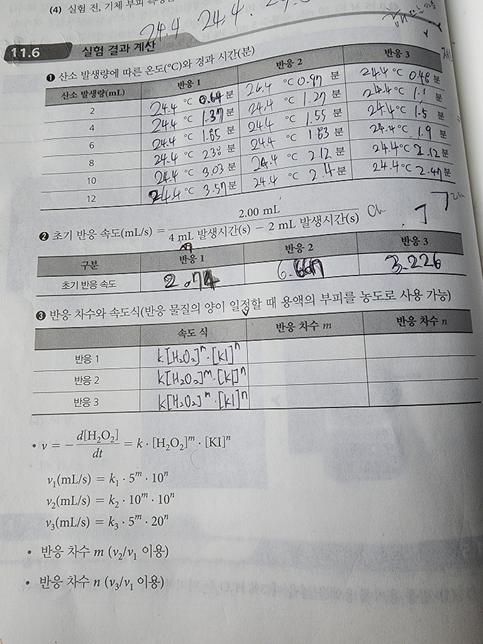 (4) 실험 전, 기체 부피
24.4 24.4.
11.6 실험 결과 계산
❶ 산소 발생량에 따른 온도(℃)와 경과 시간(분)
산소 발생량(mL) 반응 1 반응 2 반응 3
2 24.4 ℃ 0.64 분 24.4 ℃ 0.97 분 24.4 ℃ 0.68 분
4 24.4 ℃ 1.37 분 24.4 ℃ 1.29 분 24.4 ℃ 1.1 분
6 24.4 ℃ 1.85 분 24.4 ℃ 1.55 분 24.4 ℃ 1.5 분
8 24.4 ℃ 분 24.4 ℃ 1.83 분 24.4 ℃ 1.9 분
10 24.4 ℃ 3.03 분 24.4 ℃ 2.12 분 24.4 ℃ 2.12 분
12 24.4 ℃ 3.57 분 24.4 ℃ 2.4 분 24.4 ℃ 2.47 분
❷ 초기 반응 속도(mL/s) = 2.00 mL / 4 mL 발생시간(s) − 2 mL 발생시간(s)
구분 반응 1 반응 2 반응 3
초기 반응 속도 2.74 3.226
❸ 반응 차수와 속도식(반응 물질의 양이 일정할 때 용액의 부피를 농도로 사용 가능)
속도 식 반응 차수 m 반응 차수 n
반응 1 k[H₂O₂]ᵐ·[KI]ⁿ
반응 2 k[H₂O₂]ᵐ·[KI]ⁿ
반응 3 k[H₂O₂]ᵐ·[KI]ⁿ
• v = − d[H₂O₂]/dt = k · [H₂O₂]ᵐ · [KI]ⁿ
v₁(mL/s) = k₁ · 5ᵐ · 10ⁿ
v₂(mL/s) = k₂ · 10ᵐ · 10ⁿ
v₃(mL/s) = k₃ · 5ᵐ · 20ⁿ
• 반응 차수 m (v₂/v₁ 이용)
• 반응 차수 n (v₃/v₁ 이용)